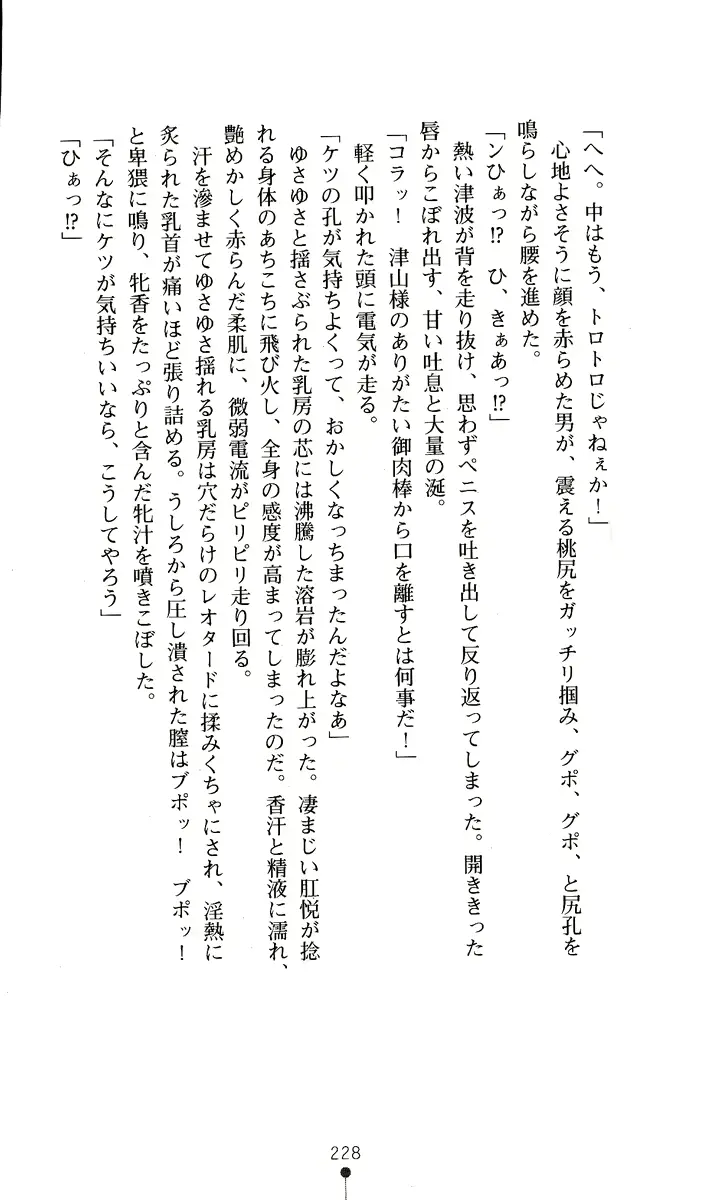 「へへ。中はもう、トロトロじゃねぇか！」
心地よさそうに顔を赤らめた男が、震える桃尻をガッチリ掴み、グポ、グポ、と尻孔を
鳴らしながら腰を進めた。
「ンひぁっ!?　ひ、きぁあっ!?」
熱い津波が背を走り抜け、思わずペニスを吐き出して反り返ってしまった。開ききった
唇からこぼれ出す、甘い吐息と大量の涎。
「コラッ！　津山様のありがたい御肉棒から口を離すとは何事だ！」
軽く叩かれた頭に電気が走る。
「ケツの孔が気持ちよくって、おかしくなっちまったんだよなあ」
ゆさゆさと揺さぶられた乳房の芯には沸騰した溶岩が膨れ上がった。凄まじい肛悦が捻
れる身体のあちこちに飛び火し、全身の感度が高まってしまったのだ。香汗と精液に濡れ、
艶めかしく赤らんだ柔肌に、微弱電流がピリピリ走り回る。
汗を滲ませてゆさゆさ揺れる乳房は穴だらけのレオタードに揉みくちゃにされ、淫熱に
炙られた乳首が痛いほど張り詰める。うしろから圧し潰された膣はブポッ！　ブポッ！
と卑猥に鳴り、牝香をたっぷりと含んだ牝汁を噴きこぼした。
「そんなにケツが気持ちいいなら、こうしてやろう」
「ひぁっ!?」
228